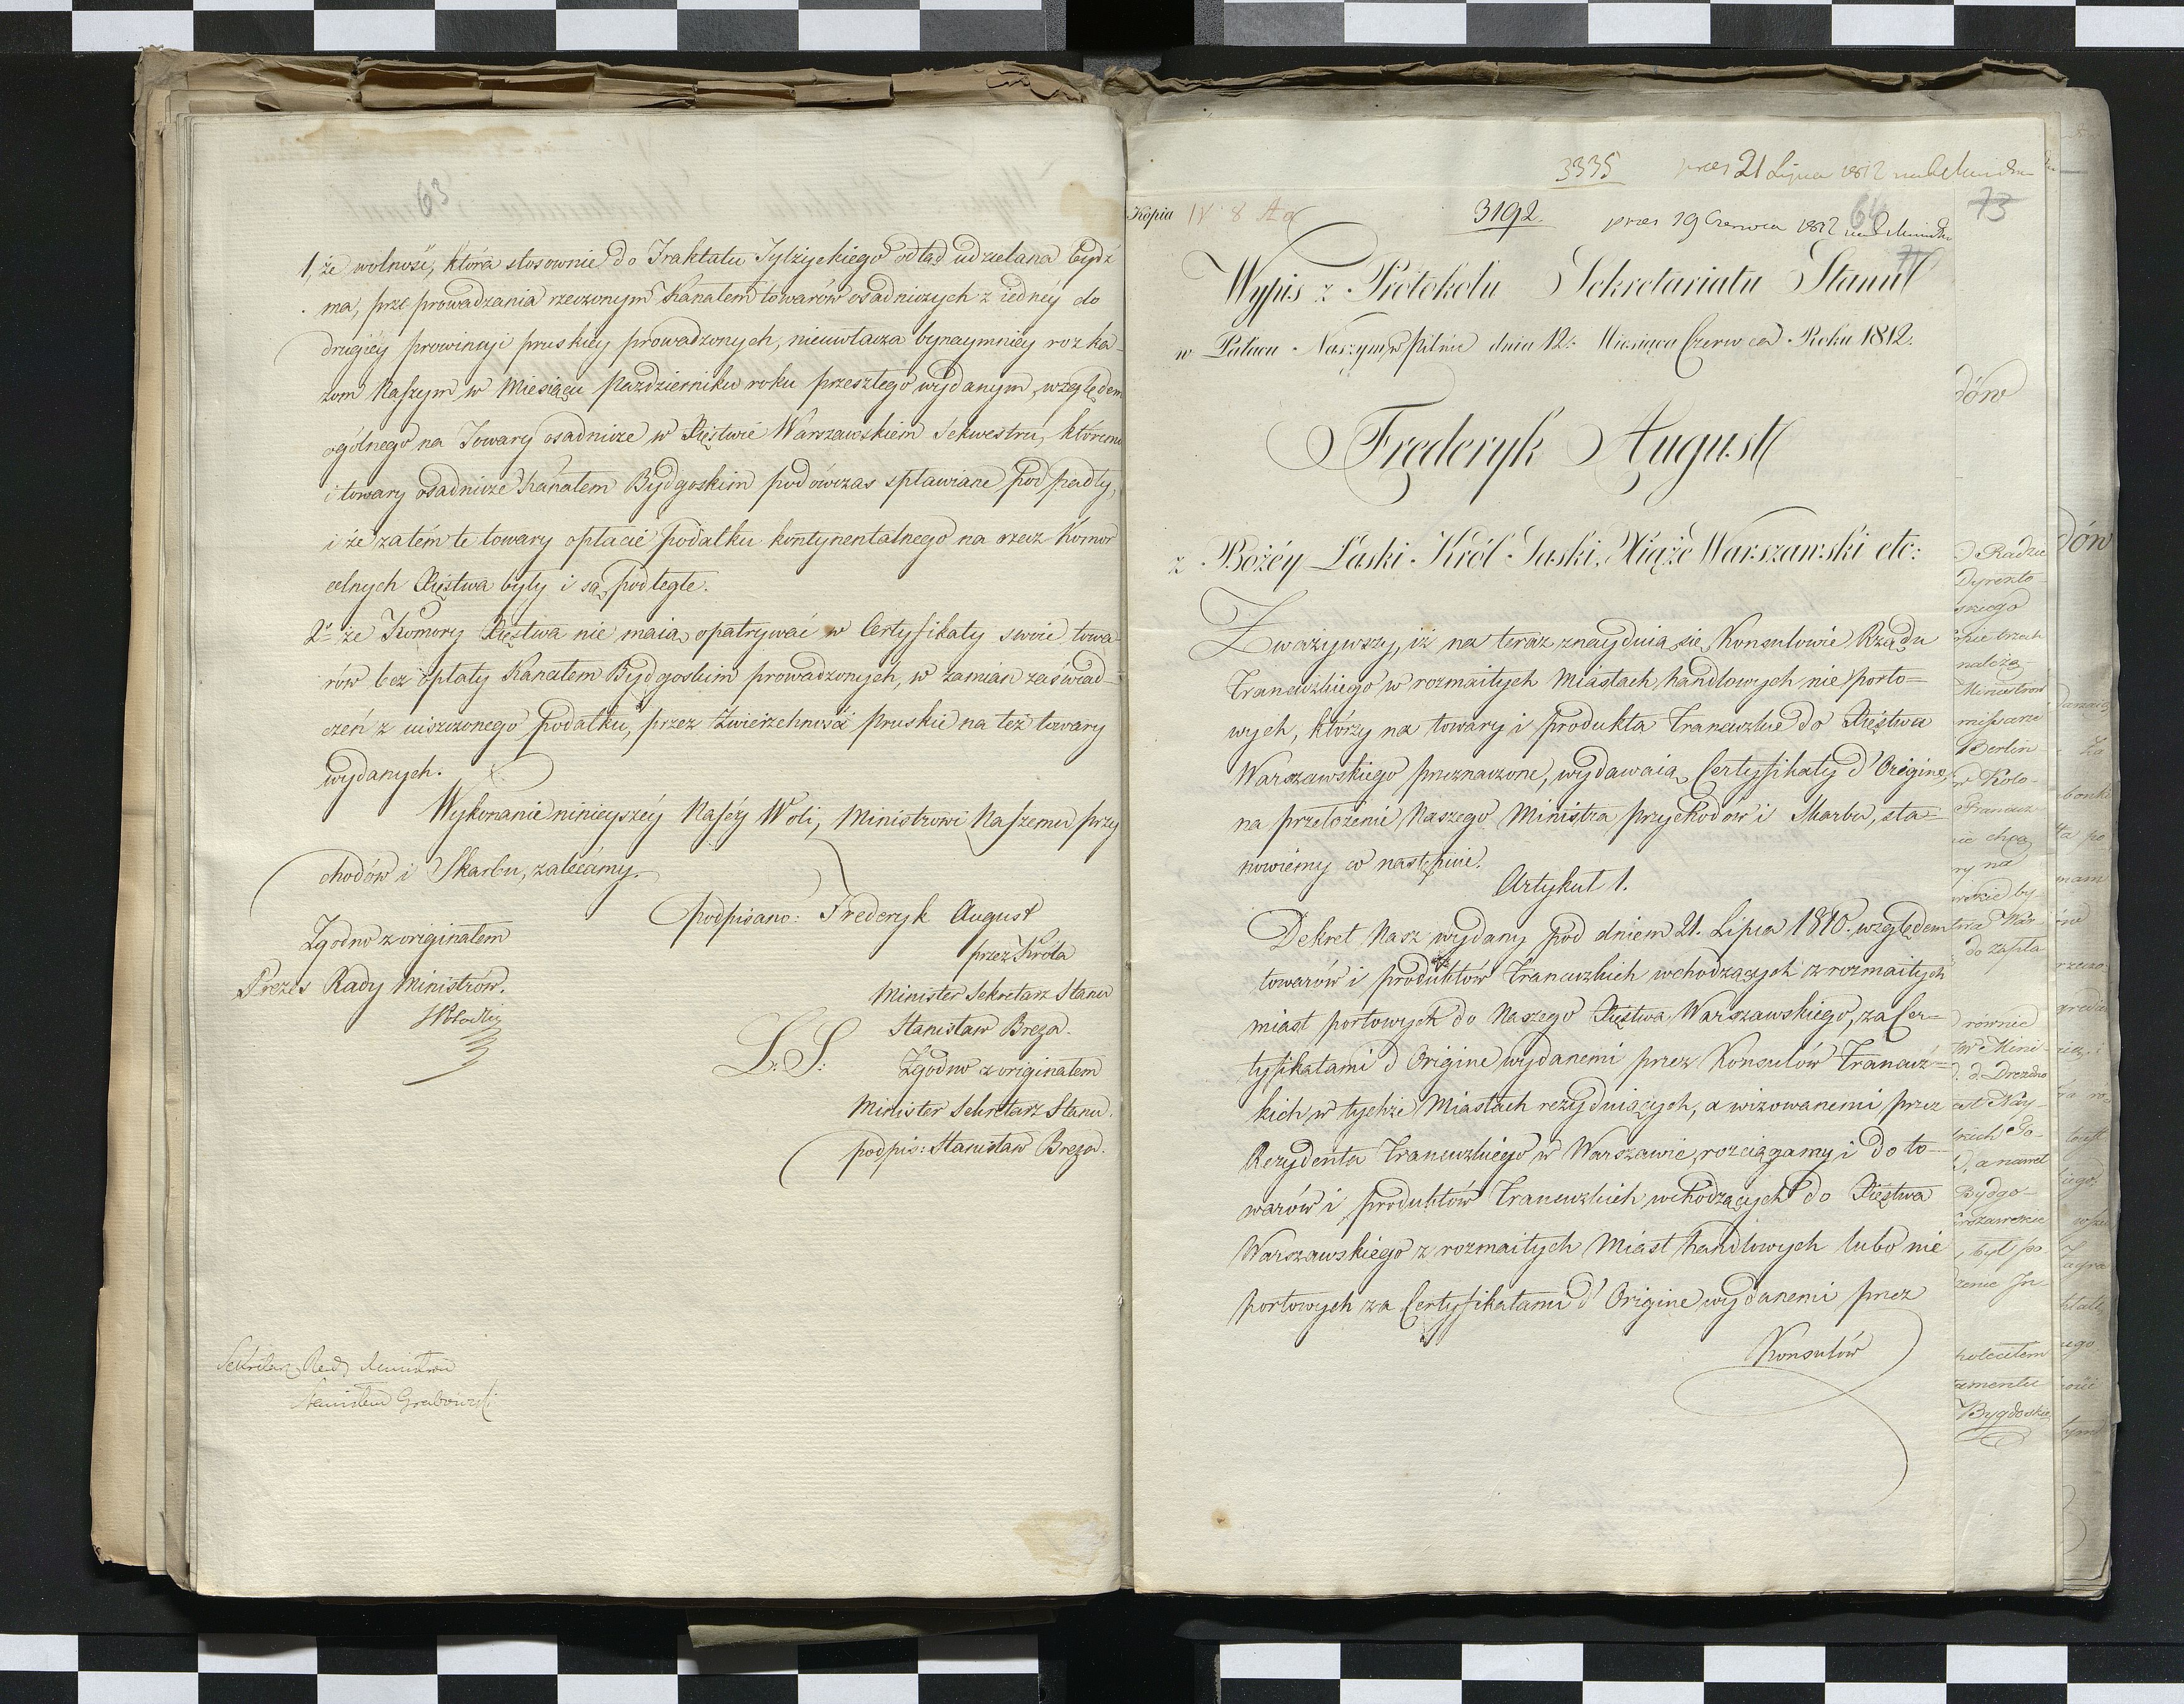 63
1, że wolność, która stosownie do Traktatu Tylżyckiego odtąd udzielana bydź
ma, przeprowadzania rzeczonym Kanałem towarów osadniczych z iedney do
drugiéy prowincyi pruskiey prowadzonych, nieuwłacza bynaymniey rozka-
zom Naszym w Miesiącu Pazdzierniku roku przeszłego wydanym, względem
ogólnego na Towary osadnicze w Xięstwie Warszawskiem Sekwestru, któremu
i towary osadnicze Kanałem Bydgoskim podówczas spławiane podpadły,
i że zatém te towary opłacie podatku kontynentalnego na rzecz Komor
celnych Xięstwa były i są podległe.
2º że Komory Xięstwa nie maią opatrywać w Certyfikaty swoie towa-
rów bez opłaty Kanałem Bydgoskim prowadzonych, w zamian zaświad-
czeń z uiszczonego podatku, przez Zwierzchność pruskie na też towary
wydanych.
Wykonanie ninieyszéy Naszéy Woli, Ministrowi Naszemu przy
chodów i Skarbu, zalecamy.
podpisano: Frederyk August
przez Króla
Minister Sekretarz Stanu
Stanisław Breza.
L. S.
Zgodno z originałem
Minister Sekretarz Stanu.
podpis: Stanisław Breza.
Zgodno z originałem
Prezes Rady Ministrów.
Sekretarz Rady Ministrów
Stanisław Grabowski
3335 praes 21 Lipca 1812
Kopia IV 8
3192. praes 19 Czerwca 1812
64 73
Wypis z Protokołu Sekretariatu Stanu
w Pałacu Naszym w Pilnic dnia 12. Miesiąca Czerwca Roku 1812.
Frederyk August
z Bożéy Łaski Król Saski, Xiąże Warszawski etc:
Zważywszy, iż na teraz znayduią się Konsulowie Rządu
Francuzkiego w rozmaitych Miastach handlowych nie porto=
wych, którzy na towary i produkta Francuzkie do Xięstwa
Warszawskiego przeznaczone, wydawaią Certyfikaty d'Origine,
na przełożenie Naszego Ministra przychodów i Skarbu, sta=
nowiemy co następuie.
Artykuł 1.
Dekret Nasz wydany pod dniem 21. Lipca 1810. względem
towarów i produktów Francuzkich wchodzących z rozmaitych
miast portowych do Naszego Xięstwa Warszawskiego, za Cer=
tyfikatami d Origine wydanemi przez Konsulów Francuz=
kich w tychże Miastach rezyduiących, a wizowanemi przez
Rezydenta Francuzkiego w Warszawie, rozciągamy i do to-
warów i produktów Francuzkich wchodzących do Xięstwa
Warszawskiego z rozmaitych Miast handlowych lubo nie
portowych za Certyfikatami d' Origine wydanemi przez
Konsulów
dów
Radzie
trzech
należą
Berlin
chcą
ry na
do zapła
równie
Drezdno
a nawet
Bydgo-
był po
Bydgoskie
dów